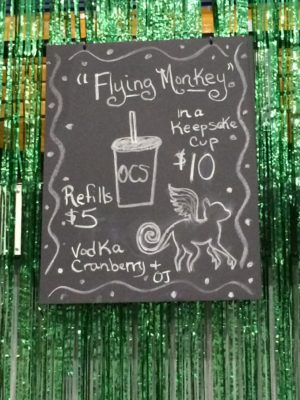 "Flying Monkey"
in a
Keepsake
Cup
$10
OCS
Refills
$5
Vodka
Cranberry +
OJ